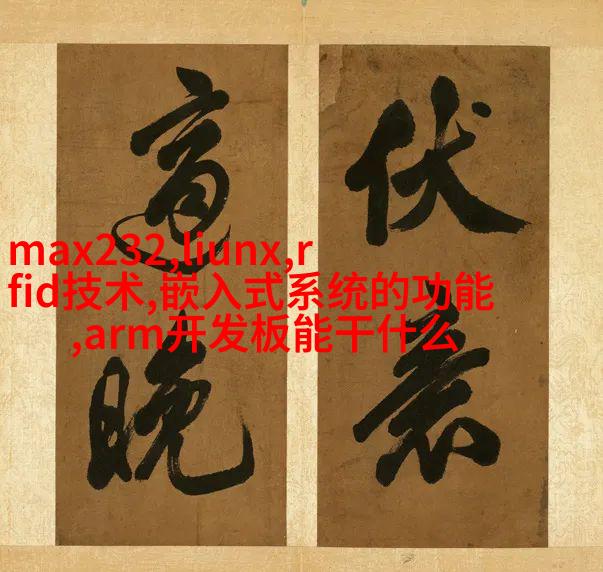 max232,liunx,r
fid技术,嵌入式系统的功能
,arm开发板能干什么
伏
晚